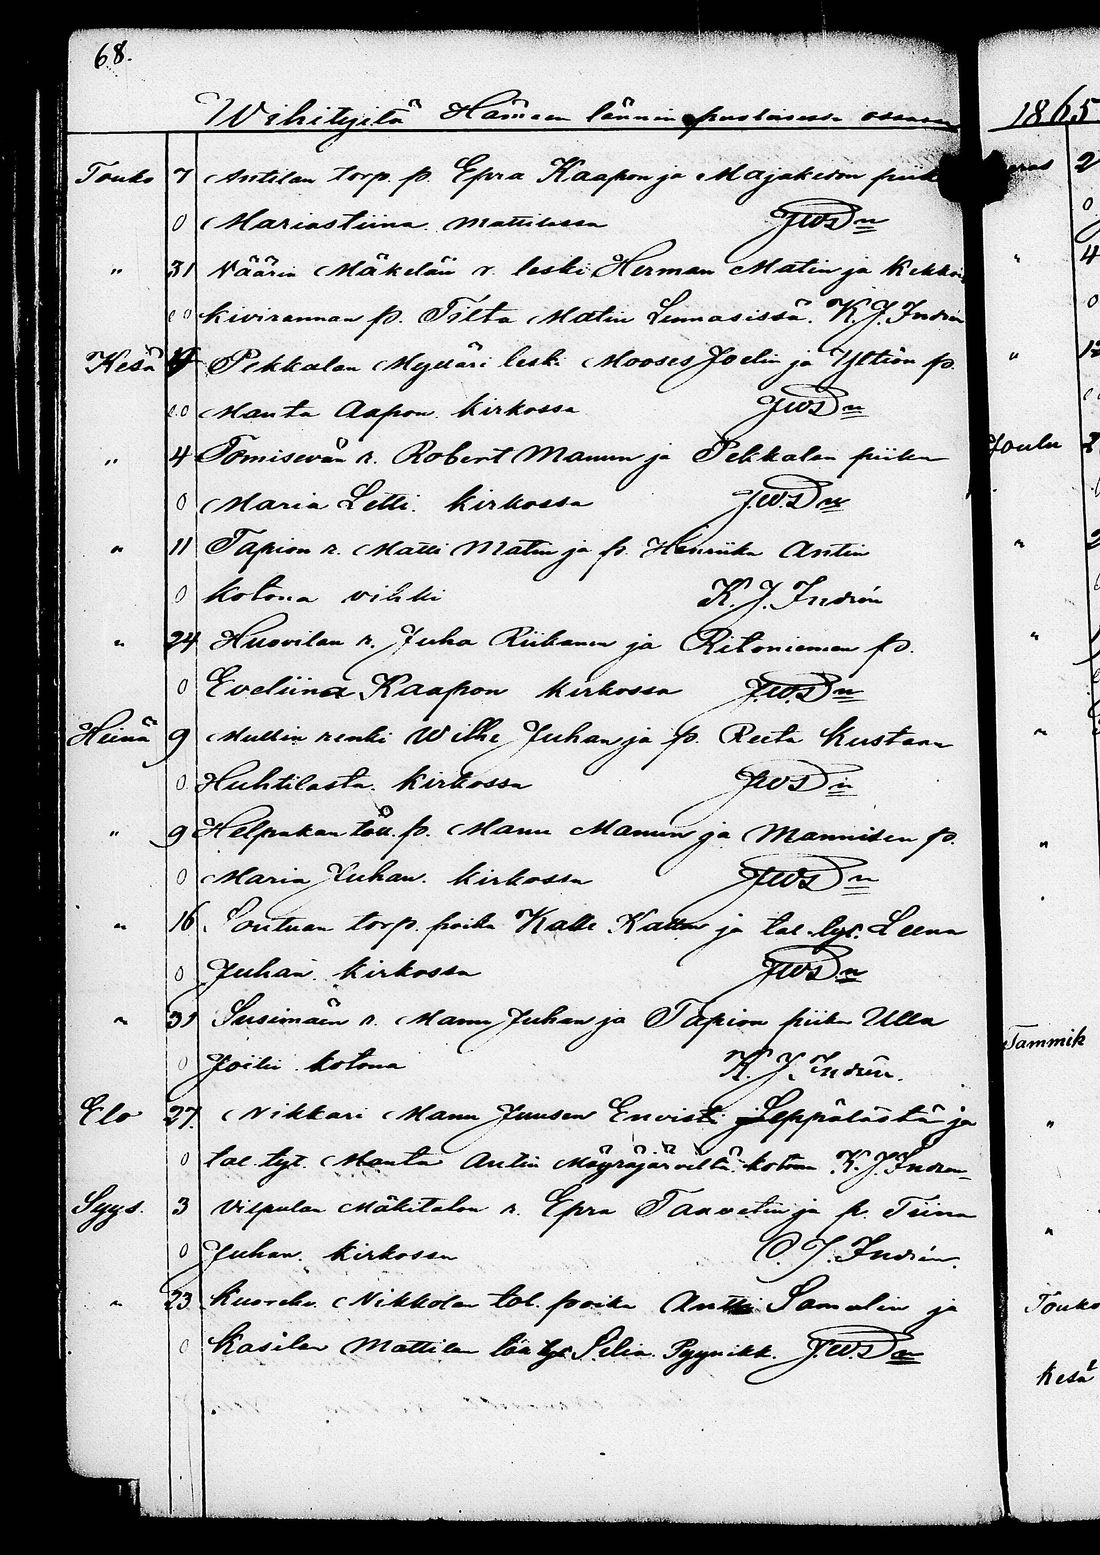 68.
Wihityitä Hämeen läänin puolaisessa osassa
Touko 7 Antilan torp. p. Epra Kaapon ja Majakedon piik
0 Mariastiina Mattilassa JWSDn
" 31 Näärin Mäkelän r. leski Herman Matin ja Kekkoi
00 kivirannan p. Tilta Matin Lunnasissä. K. J. Indrén
Kesä 4 Pekkalan Mylläri leski Mooses Joelin ja Yltiön p.
00 Manta Aapon. kirkossa JWSDn
" 4 Tomisevän r. Robert Manun ja Pekkalan piika
0 Maria Letti. kirkossa J.W.SDn
" 11 Tapion r. Matti Matin ja p. Henriika Antin
0 kotona vihki K. J. Indrén
" 24 Huovilan r. Juha Riihanen ja Ritoniemen p.
0 Eveliina Kaapon kirkossa J.W.SDn
Heinä 9 Mullin renki Wilhe Juhan ja p. Reeta Kustaan
0 Huhtilasta. kirkossa JWSDn
" 9 Helpukan töll. p. Manu Manun ja Mannisen p.
0 Maria Juhan. kirkossa JWSDn
" 16 Soutuan torp. poika Kalle Kallen ja tal. tyt. Leena
0 Juhan. kirkossa JWSDn
" 31 Susimäen r. Manu Juhan ja Tapion piika Ulla
0 Joelin kotona K. J. Indrén.
Elo 27. Nikkari Manu Juusen Envist Leppälästä ja
0 tal. tyt. Manta Antin Mäyräjärveltä. kotona K. J. Indrén
Syys. 3 Vilpulan Mäkitalon r. Epra Taavetin ja p. Tiina
0 Juhan. kirkossa C. J. Indrén.
" 23 Kuoreh. Nikkolan tal. poika Antti Samulin ja
0 Kasilan Mattilan tyt Silia Pyynikk. J.W.SDn
1865
2
0
" 4
0
" 12
Joulu
" 2
"
"
"
"
Tammik
"
"
Touko
Kesä